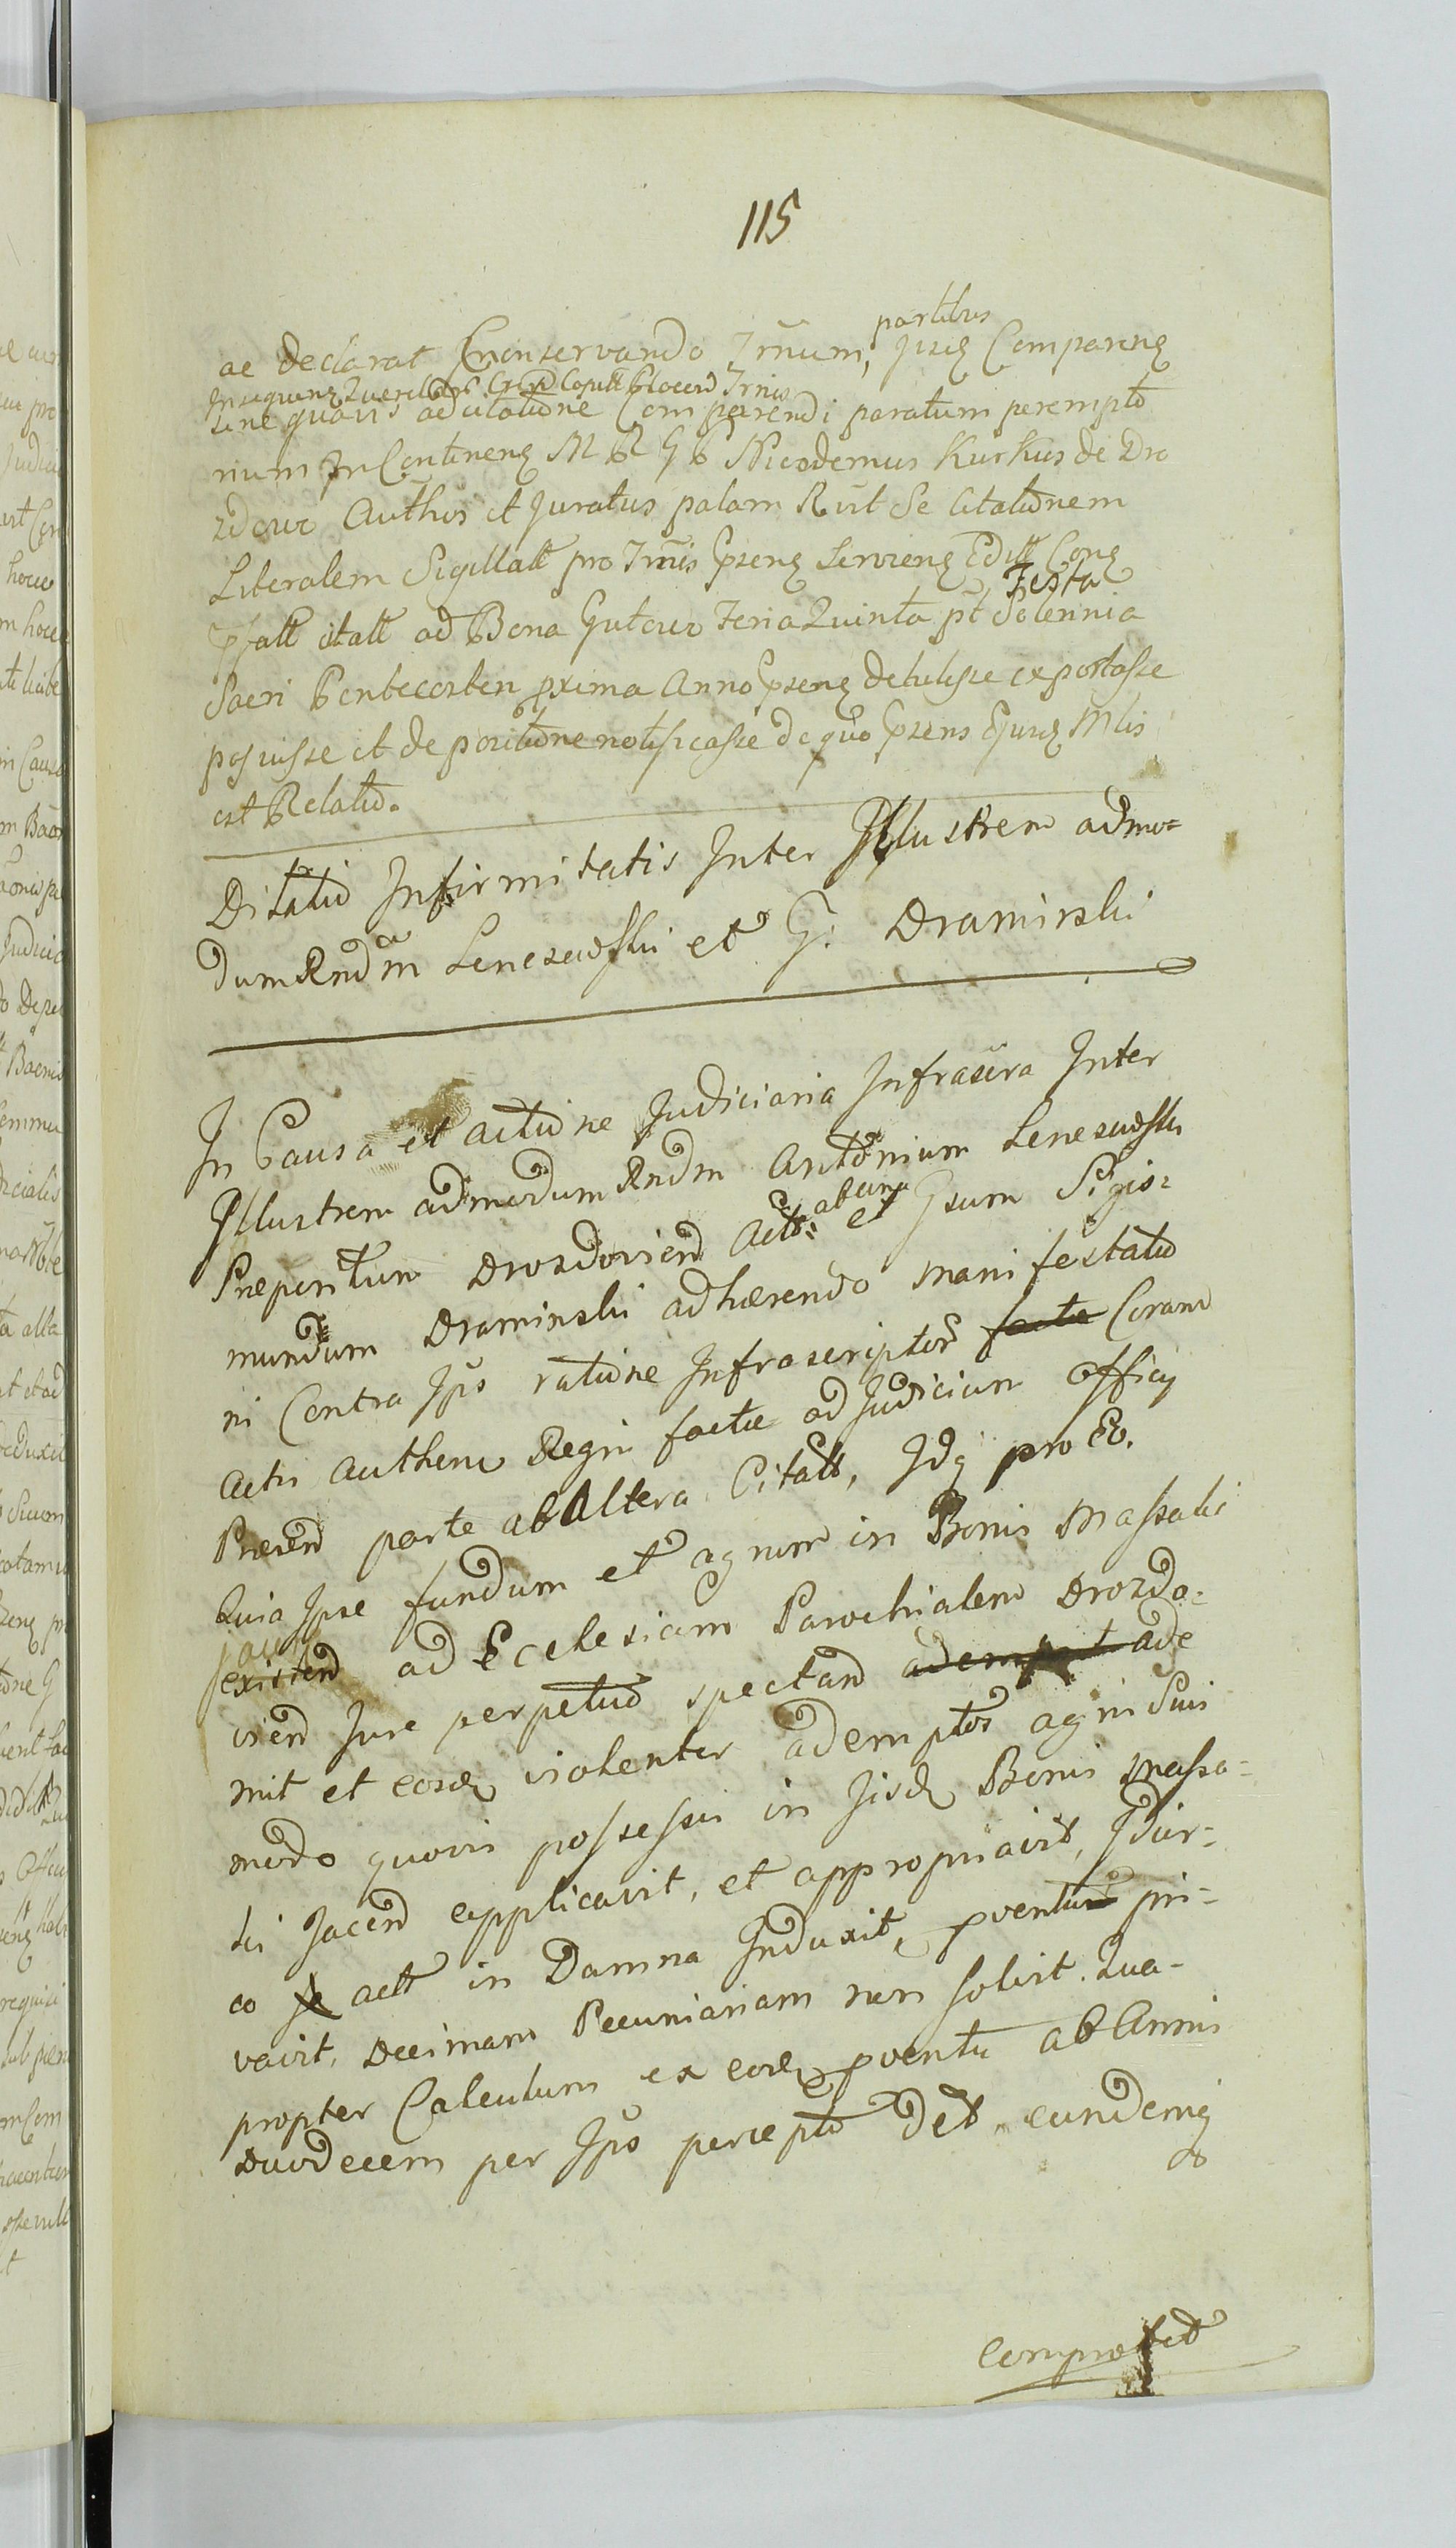 115
partibus
ac declarat Conservando Trnum, Jisq Compareng
sine quavis ad citatione Comparendi paratum perempto
rium In Contineng M R G P Nicodemus Kurkus de Dro
zdowo Auth̃us et Juratus palam Rūt Se Citationem
Liberalem Sigillatt pro Trnis Spseng Servieng Edill Cong
Festa
ad Bona Gutowo Feria Quinta pt Solennia
Sacri Pentecosten pxima Anno pseng detulisse exportasse
posuisse et de positione notificasse de quo psens Ejusq Mlis
est Relatio.
Dilatio Infirmitatis Inter Illustrem admo-
dum Rndm Lenczewski et G: Dramiński
In Causa et actione Judiciaria Infrascra Inter
Illustrem admodum Rndm Antonium Lenczewski
ab una
Præpositum Drozdovien Act: et Gsum Sigis-
mundum Dramiński adhærendo manifestatio
ni Contra Ips ratione Infrascriptor factæ Coram
Actis Authen Regni factæ ad Judicium Officij
Præsen parte ab Altera Citatt, Idq pro Eo.
Quia Ipse fundum et agrum in Bonis Massaki
jacen
existen ad Ecclesiam Parochialem Drozdo-
vien Jure perpetuo spectan adempt ade
mit et eosd violenter ademptos agri Suis
modo quovis possessis in Jisd Bonis Massa-
ki Jacen applicavit, et appropriavit, Idcir-
co se actt in Damna Induxit, pventu pri-
vavit, Decimam Pecuniariam non solvit. Qua-
propter Calculum ex eod pventu ab Annis
Duodecem per Ips percepto det eundemq
Comprobet